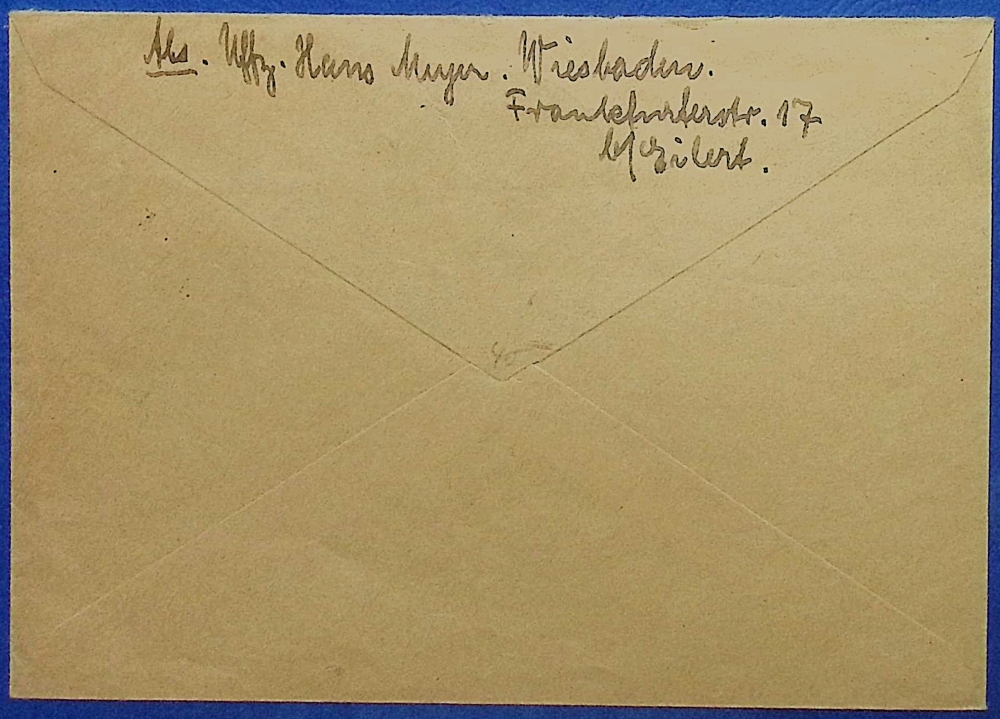 Abs. Uffz. Hans Meyer. Wiesbaden.
Frankfurterstr. 17
b/Eilert.
45